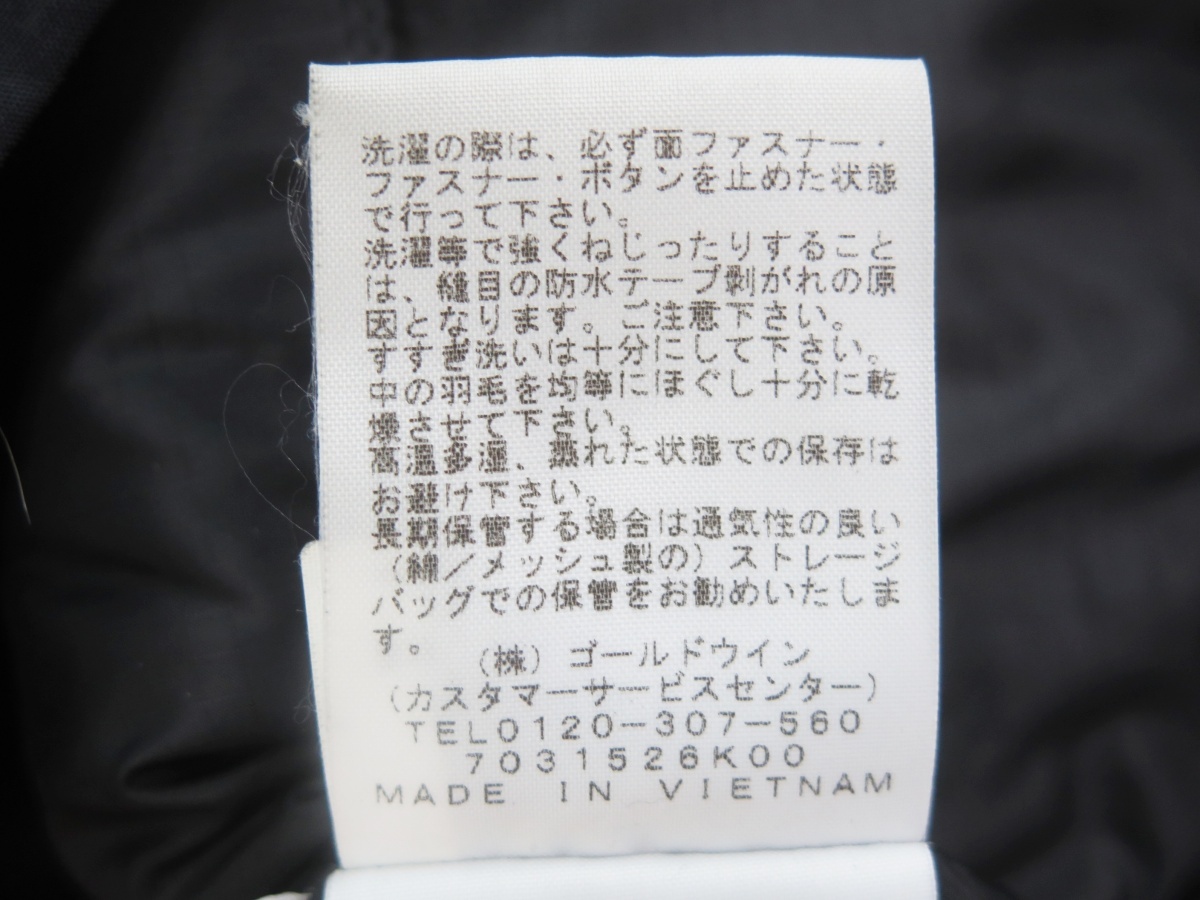 洗濯の際は、必ず面ファスナー・
ファスナー・ボタンを止めた状態
で行って下さい。
洗濯等で強くねじったりすること
は、縫目の防水テープ剥がれの原
因となります。ご注意下さい。
すすぎ洗いは十分にして下さい。
中の羽毛を均等にほぐし十分に乾
燥させて下さい。
高温多湿、蒸れた状態での保存は
お避け下さい。
長期保管する場合は通気性の良い
（綿／メッシュ製の）ストレージ
バッグでの保管をお勧めいたしま
す。
（株）ゴールドウイン
（カスタマーサービスセンター）
TEL0120-307-560
7031526K00
MADE IN VIETNAM